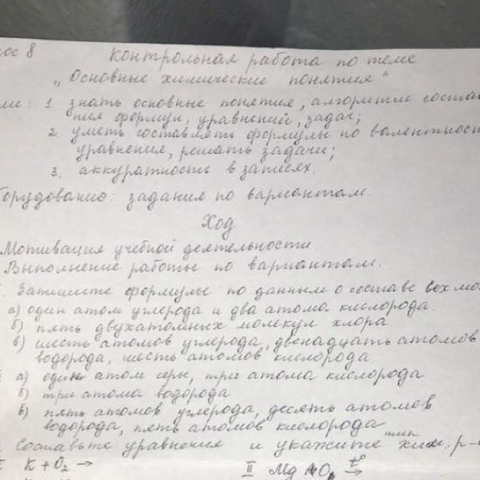 сс 8 Контрольная работа по теме
„Основные химические понятия"
ли: 1. знать основные понятия, алгоритм состав
ния формул, уравнений, задач;
2. уметь составлять формулы по валентнос
уравнения, решать задачи;
3. аккуратность в записях.
борудование: задания по вариантам.
Ход
Мотивация учебной деятельности
Выполнение работы по вариантам.
Запишите формулы по данным о составе
а) один атом углерода и два атома кислорода
б) пять двухатомных молекул хлора
в) шесть атомов углерода, двенадцать атомов
водорода, шесть атомов кислорода
а) один атом серы, три атома кислорода
б) три атома водорода
в) пять атомов углерода, десять атомов
водорода, пять атомов кислорода
Составьте уравнения и укажите тип хим. р-
I K + O₂ → II Mg